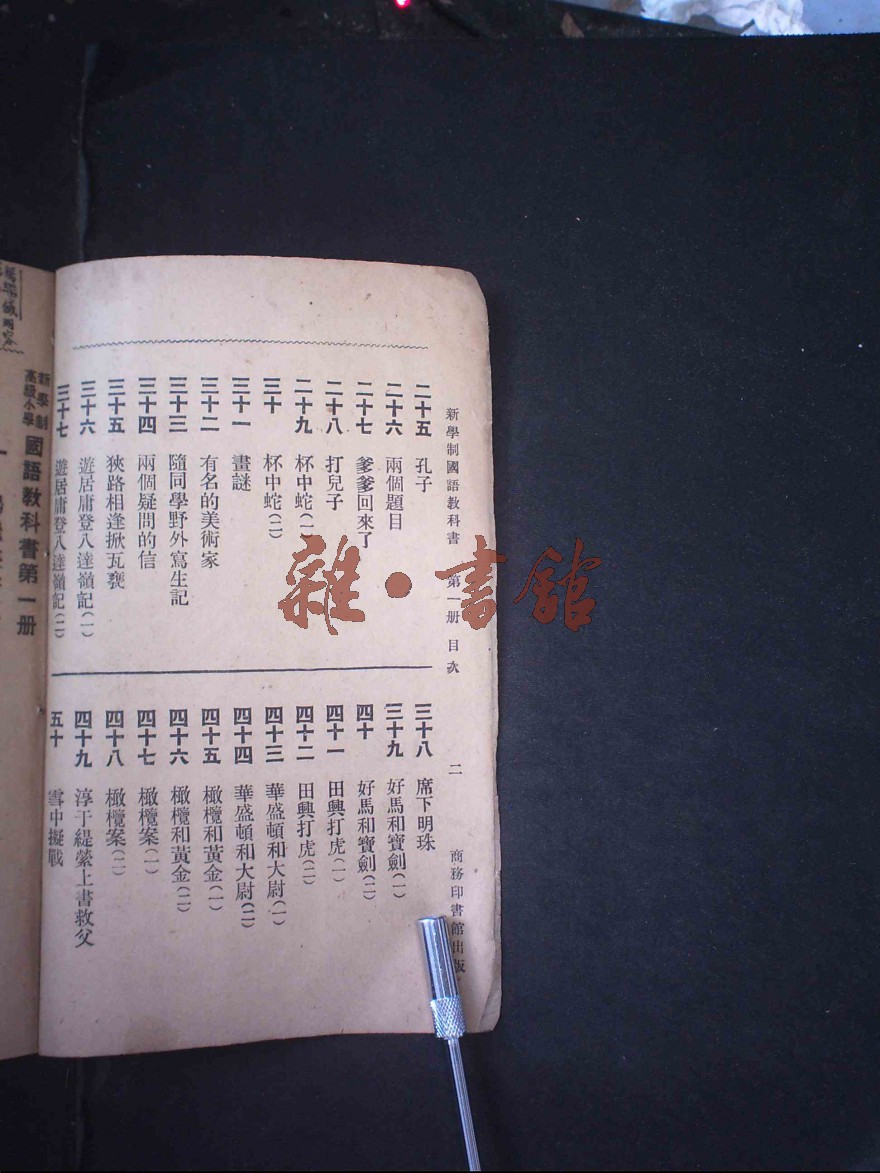 新學制國語教科書 第一册 目次 二 商務印書館出版
二十五 孔子
二十六 兩個題目
二十七 爹爹回來了
二十八 打兒子
二十九 杯中蛇(一)
三十 杯中蛇(二)
三十一 畫謎
三十二 有名的美術家
三十三 隨同學野外寫生記
三十四 兩個疑問的信
三十五 狹路相逢掀瓦甕
三十六 遊居庸登八達嶺記(一)
三十七 遊居庸登八達嶺記(二)
三十八 席下明珠
三十九 好馬和寶劍(一)
四十 好馬和寶劍(二)
四十一 田興打虎(一)
四十二 田興打虎(二)
四十三 華盛頓和大尉(一)
四十四 華盛頓和大尉(二)
四十五 橄欖和黃金(一)
四十六 橄欖和黃金(二)
四十七 橄欖案(一)
四十八 橄欖案(二)
四十九 淳于緹縈上書救父
五十 雪中擬戰
新學制
高級小學
國語教科書第一册
一
雜·書館